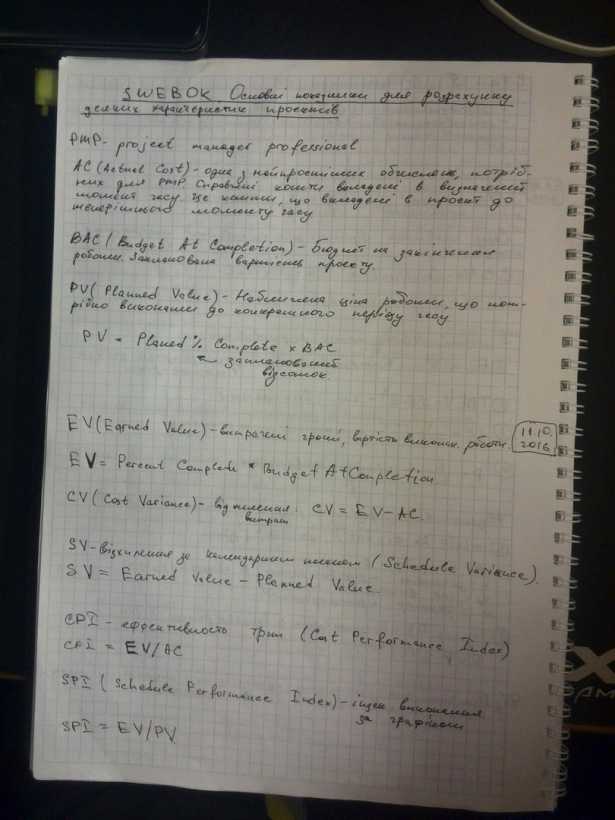 SWEBOK Основні показники для розрахунку
деяких характеристик проектів
PMP - project manager professional
AC (Actual Cost) - одна з найпростіших обчислень, потріб-
них для PMP. Справжні кошти викладені в визначений
момент часу. Це кошти, що викладені в проект до
теперішнього моменту часу
BAC (Budget At Completion) - бюджет на закінчення
роботи. Запланована вартість проекту.
PV (Planned Value) - Наближена ціна роботи, що пот-
рібно виконати до конкретного періоду часу
PV = Planed % Complete x BAC
← запланований
відсоток.
EV (Earned Value) - витрачені гроші, вартість виконан. роботи.
11.10.
2016
EV = Percent Complete * Budget At Completion
CV (Cost Variance) - відхилення
витрат
CV = EV - AC.
SV - відхилення за календарним планом (Schedule Variance).
SV = Earned Value - Planned Value.
CPI - еффективность трат (Cost Performance Index)
CPI = EV/AC
SPI (Schedule Performance Index) - індекс виконання
за графіком
SPI = EV/PV